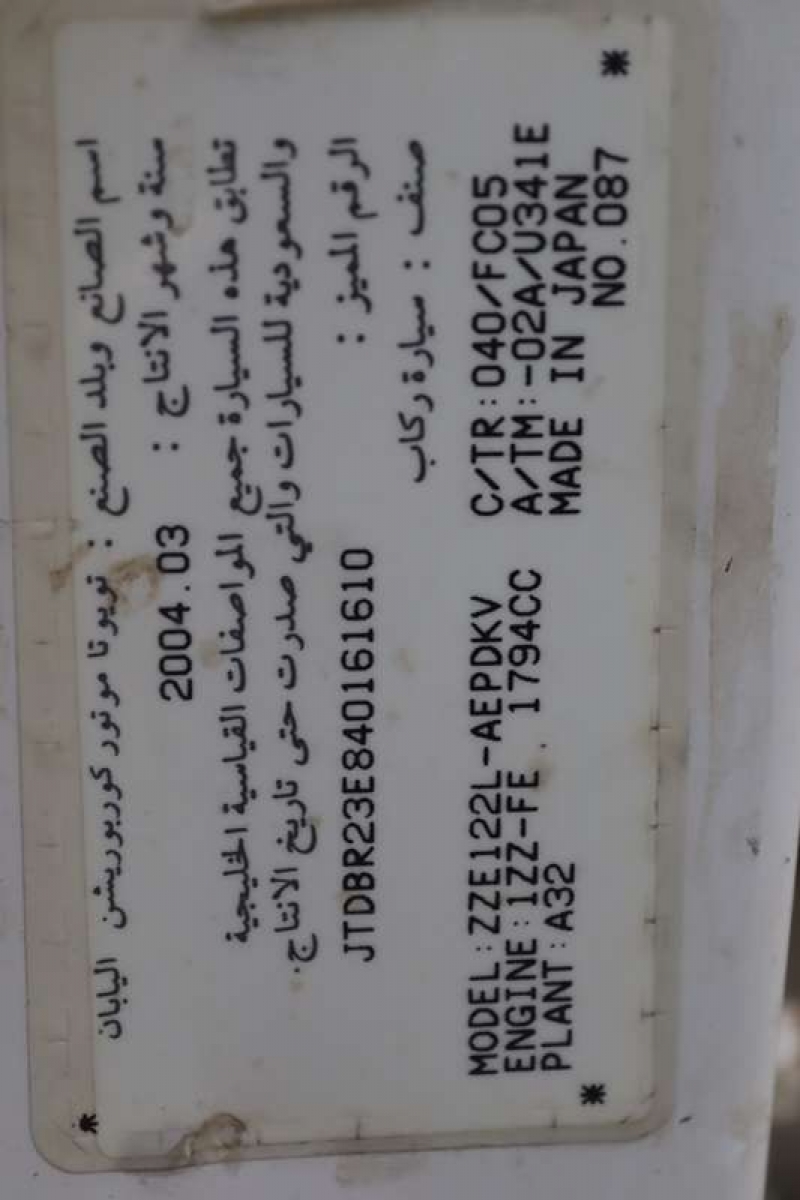 اسم الصانع وبلد الصنع : تويوتا موتور كوربوريشن اليابان
سنة وشهر الانتاج : 2004.03
تطابق هذه السيارة جميع المواصفات القياسية الخليجية
والسعودية للسيارات والتي صدرت حتى تاريخ الانتاج.
الرقم المميز : JTDBR23E840161610
صنف : سيارة ركاب
MODEL:ZZE122L-AEPDKV C/TR:040/FC05
ENGINE:1ZZ-FE . 1794CC A/TM:-02A/U341E
PLANT:A32 MADE IN JAPAN
NO.087